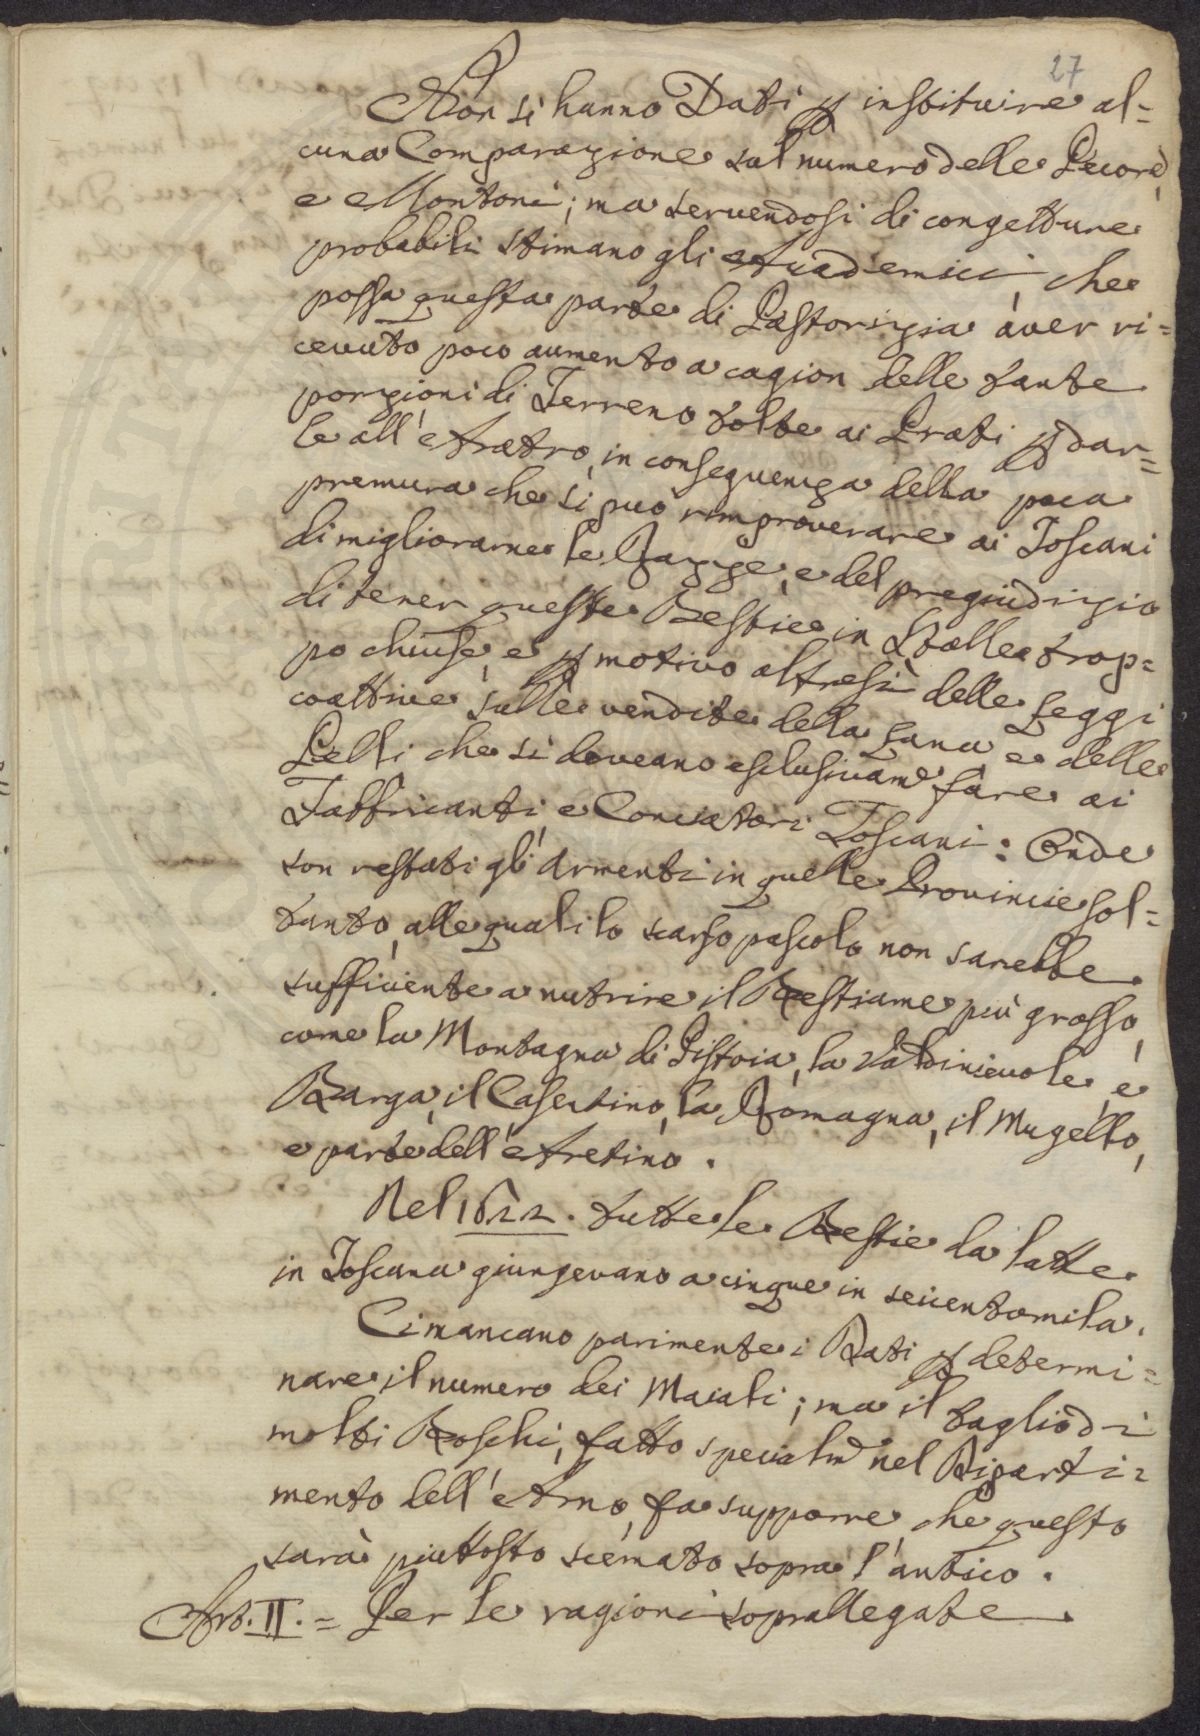 27
Non si hanno Dati p instituire al=
cuna Comparazione sul numero delle Pecore,
e Montoni; ma servendosi di congetture
probabili stimano gli Accademici, che
possa questa parte di Pastorizia aver ri=
cevuto poco aumento a cagion delle tante
porzioni di Terreno tolte ai Prati p dar=
le all'Aratro, in conseguenza della poca
premura che si può rimproverare ai Toscani
di migliorarne le Razze, e del pregiudizio
di tener queste Bestie in Stalle trop=
po chiuse, e p motivo altresì delle Leggi
coattive sulle vendite della Lana, e delle
Pelli che si doveano esclusivam.e fare ai
Fabbricanti e Conciatori Toscani: Onde
son restati gli Armenti in quelle Provincie sol=
tanto, alle quali lo scarso pascolo non sarebbe
sufficiente a nutrire il Bestiame più grosso,
come la Montagna di Pistoia, la Valdinievole, e
Barga, il Casentino, la Romagna, il Mugello,
e parte dell'Aretino.
Nel 1622. tutte le Bestie da latte
in Toscana giungevano a cinque in seicentomila.
Ci mancano parimente i Dati p determi=
nare il numero dei Maiali; ma il taglio di
molti Boschi, fatto specialm.e nel Riparti=
mento dell'Arno, fa supporre che questo
sarà piuttosto scemato sopra l'antico.
Art. II. = Per le ragioni soprallegate